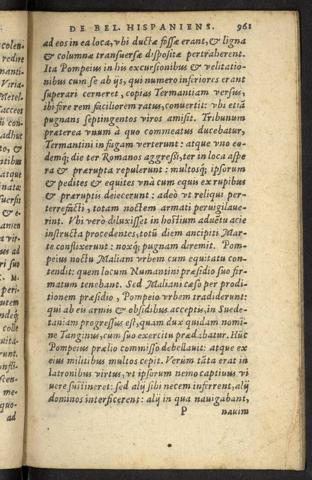 DE BEL. HISPANIENS. 961
ad eos in ea loca, vbi ductæ fossæ erant, & ligna
& columnæ transuersæ dispositæ pertraherent.
Ita Pompeius in his excursionibus & velitatio-
nibus cum se ab ijs, qui numero inferiores erant
superari cerneret, copias Termantiam versus,
ibi fore rem faciliorem ratus, conuertit: vbi etiã
pugnans septingentos viros amisit. Tribunum
præterea vnum à quo commeatus ducebatur,
Termantini in fugam verterunt: atque vno eo-
demq; die ter Romanos aggressi, ter in loca aspe
ra & prærupta repulerunt: multosq; ipsorum
& pedites & equites vnà cum equis ex rupibus
& præruptis deiecerunt: adeò vt reliqui per-
terrefacti, totam noctem armati peruigilaue-
rint. Vbi verò diluxisset in hostium aduētu acie
instructa procedentes, totũ diem ancipiti Mar-
te conflixerunt: noxq; pugnam diremit. Pom-
peius noctu Maliam vrbem cum equitatu con-
tendit: quem locum Numantini præsidio suo fir-
matum tenebant. Sed Maliani cæso per prodi-
tionem præsidio, Pompeio vrbem tradiderunt:
qui ab eis armis & obsidibus acceptis, in Suede-
taniam progressus est, quam dux quidam nomi-
ne Tanginus, cum suo exercitu prædabatur. Hũc
Pompeius prælio commisso debellauit: atque ex
eius militibus multos cepit. Verùm tãta erat in
latronibus virtus, vt ipsorum nemo captiuus vi
uere sustineret: sed alij sibi necem inferrent, alij
dominos interficerent: alij in qua nauigabant,
P nauim
colen-
redire
manti-
Viria-
Metel-
accessi
adhuc
to, &
ntibus
atque
& a-
ad
colle
vita-
runt.
infi-
scen-
me-
quo-
ad